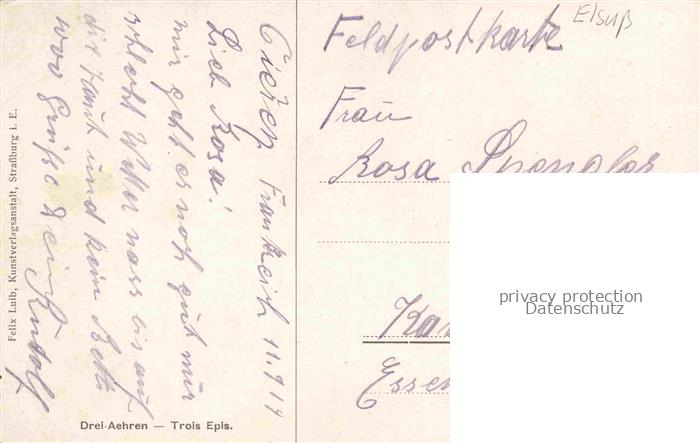 Frankreich 11.9.14
Lieb Rosa!
mir geht es noch gut nur
schlecht Wetter nass bis auf
die Haut und kein Bett
1000 Grüße dein Rudolf
Felix Luib, Kunstverlagsanstalt, Straßburg i. E.
Drei-Aehren — Trois Epis.
Elsaß
Feldpostkarte
Frau
Rosa Spengler
Essen
privacy protection
Datenschutz